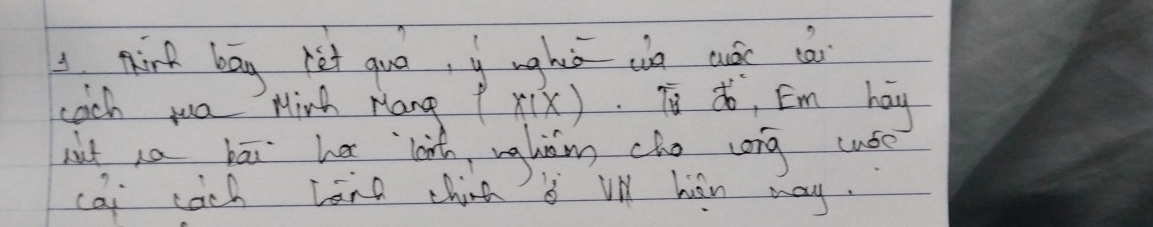 1. Trình bày kết quả, ý nghĩa của cuộc cải
cách của Minh Mạng (XIX). Từ đó, Em hãy
rút ra bài học kinh nghiệm cho công cuộc
cải cách hành chính ở VN hiện nay.